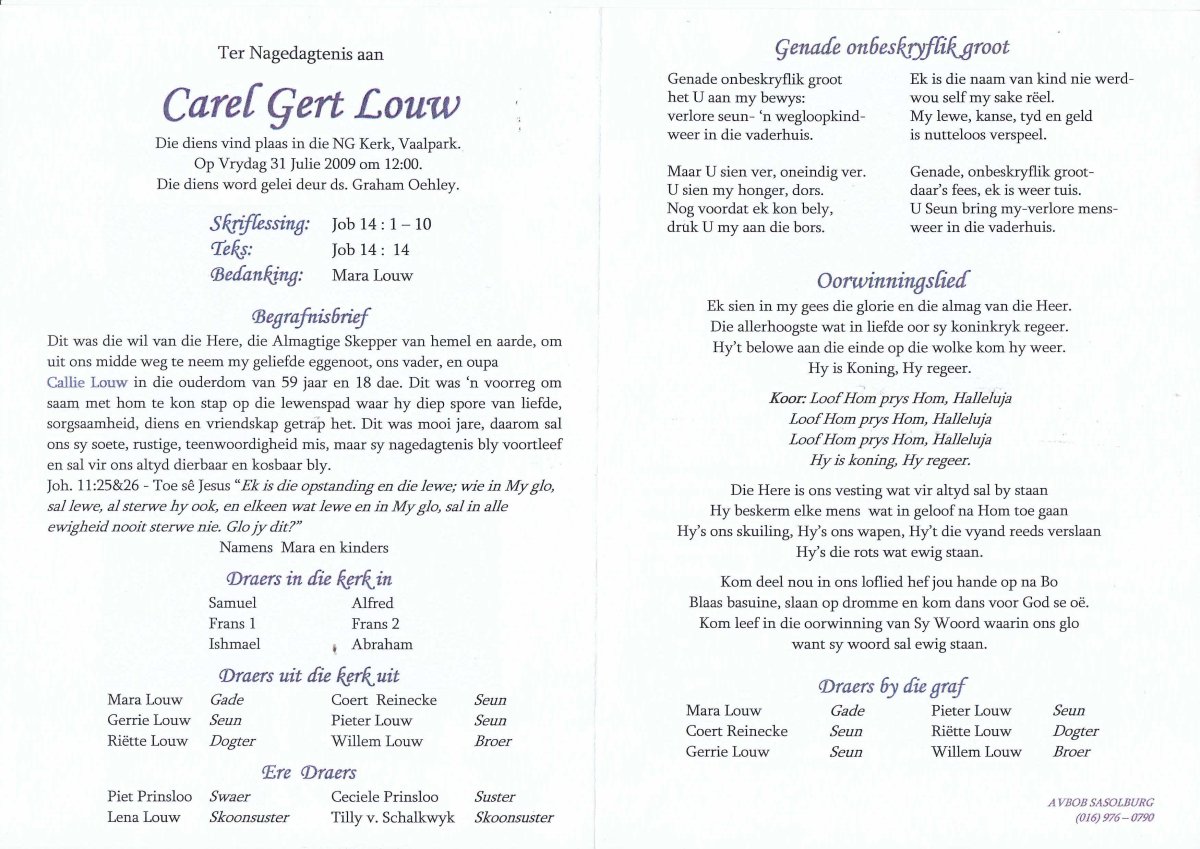 Ter Nagedagtenis aan
Carel Gert Louw
Die diens vind plaas in die NG Kerk, Vaalpark.
Op Vrydag 31 Julie 2009 om 12:00.
Die diens word gelei deur ds. Graham Oehley.
Skriflessing: Job 14 : 1 – 10
Teks: Job 14 : 14
Bedanking: Mara Louw
Begrafnisbrief
Dit was die wil van die Here, die Almagtige Skepper van hemel en aarde, om
uit ons midde weg te neem my geliefde eggenoot, ons vader, en oupa
Callie Louw in die ouderdom van 59 jaar en 18 dae. Dit was ‘n voorreg om
saam met hom te kon stap op die lewenspad waar hy diep spore van liefde,
sorgsaamheid, diens en vriendskap getrap het. Dit was mooi jare, daarom sal
ons sy soete, rustige, teenwoordigheid mis, maar sy nagedagtenis bly voortleef
en sal vir ons altyd dierbaar en kosbaar bly.
Joh. 11:25&26 - Toe sê Jesus “Ek is die opstanding en die lewe; wie in My glo,
sal lewe, al sterwe hy ook, en elkeen wat lewe en in My glo, sal in alle
ewigheid nooit sterwe nie. Glo jy dit?”
Namens Mara en kinders
Draers in die kerk in
Samuel Alfred
Frans 1 Frans 2
Ishmael Abraham
Draers uit die kerk uit
Mara Louw Gade Coert Reinecke Seun
Gerrie Louw Seun Pieter Louw Seun
Riëtte Louw Dogter Willem Louw Broer
Ere Draers
Piet Prinsloo Swaer Ceciele Prinsloo Suster
Lena Louw Skoonsuster Tilly v. Schalkwyk Skoonsuster
Genade onbeskryflik groot
Genade onbeskryflik groot
het U aan my bewys:
verlore seun- ‘n wegloopkind-
weer in die vaderhuis.
Maar U sien ver, oneindig ver.
U sien my honger, dors.
Nog voordat ek kon bely,
druk U my aan die bors.
Ek is die naam van kind nie werd-
wou self my sake rëel.
My lewe, kanse, tyd en geld
is nutteloos verspeel.
Genade, onbeskryflik groot-
daar’s fees, ek is weer tuis.
U Seun bring my-verlore mens-
weer in die vaderhuis.
Oorwinningslied
Ek sien in my gees die glorie en die almag van die Heer.
Die allerhoogste wat in liefde oor sy koninkryk regeer.
Hy’t belowe aan die einde op die wolke kom hy weer.
Hy is Koning, Hy regeer.
Koor: Loof Hom prys Hom, Halleluja
Loof Hom prys Hom, Halleluja
Loof Hom prys Hom, Halleluja
Hy is koning, Hy regeer.
Die Here is ons vesting wat vir altyd sal by staan
Hy beskerm elke mens wat in geloof na Hom toe gaan
Hy’s ons skuiling, Hy’s ons wapen, Hy’t die vyand reeds verslaan
Hy’s die rots wat ewig staan.
Kom deel nou in ons loflied hef jou hande op na Bo
Blaas basuine, slaan op dromme en kom dans voor God se oë.
Kom leef in die oorwinning van Sy Woord waarin ons glo
want sy woord sal ewig staan.
Draers by die graf
Mara Louw Gade Pieter Louw Seun
Coert Reinecke Seun Riëtte Louw Dogter
Gerrie Louw Seun Willem Louw Broer
AVBOB SASOLBURG
(016) 976 – 0790